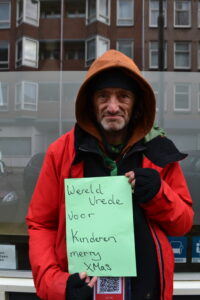 Wereld
Vrede
Voor
Kinderen
merry
XMas